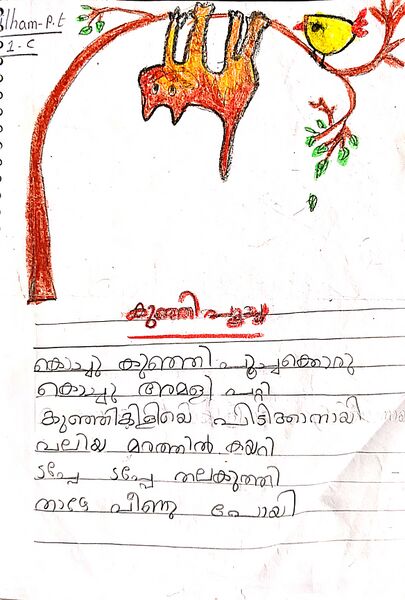 Ilham-P.t
1-C
കുഞ്ഞി പൂച്ച
കൊച്ചു കുഞ്ഞി പൂച്ചക്കൊരു
കൊച്ചു അമളി പറ്റി
കുഞ്ഞികിളിയെ പിടിക്കാനായി
വലിയ മരത്തിൽ കയറി
ടപ്പേ ടപ്പേ തലകുത്തി
താഴേ വീണു പോയി